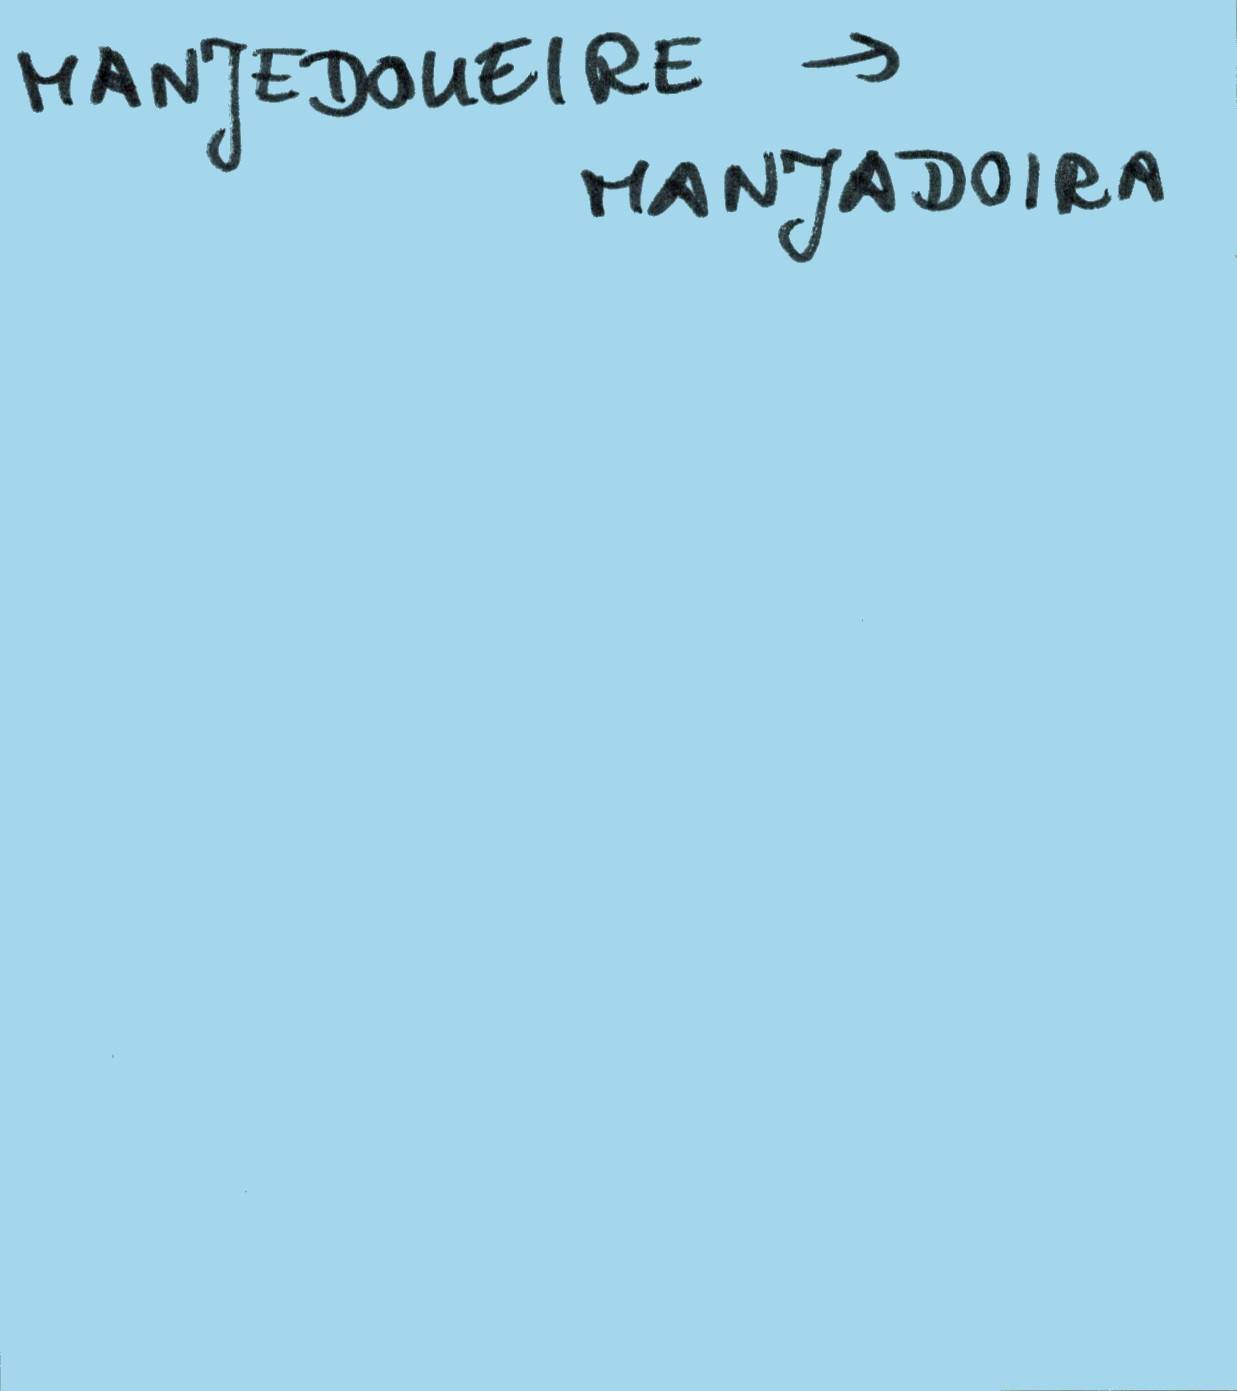 MANJEDOUEIRE →
MANJADOIRA